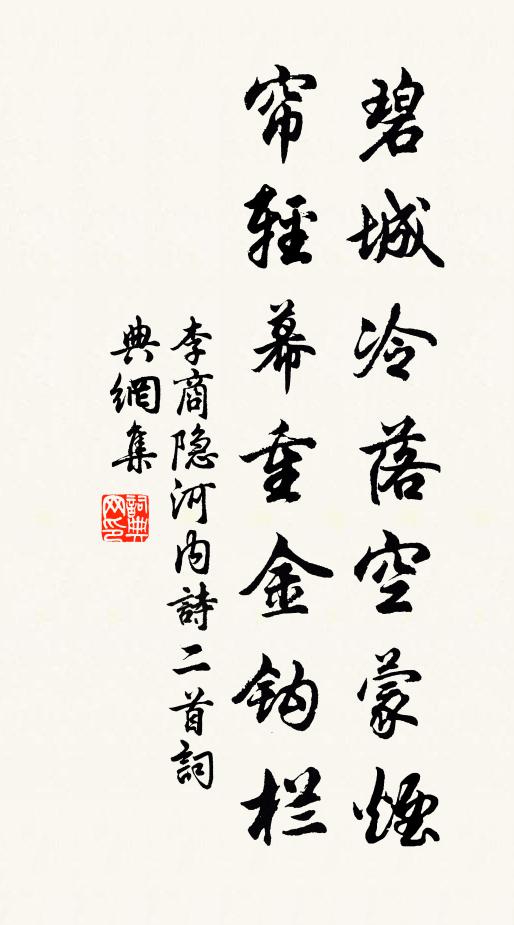 碧城冷落空蒙煙
帘輕幕重金钩栏
李商隐河内詩二首詞
典網集
詞典网印